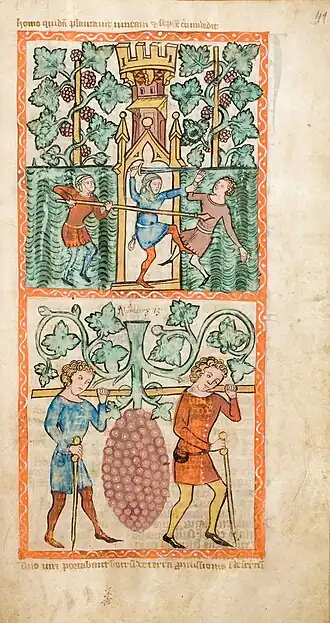 homo quidā plantauit uineam & sepē circūdedit
Numery 13
duo uiri portabant botrū de terra ꝓmissionis ī desertū